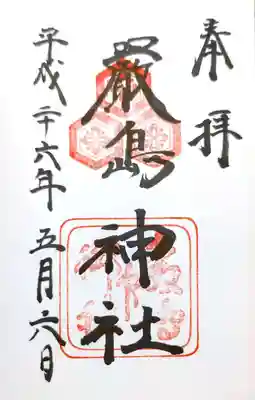 奉拝
厳島神社
平成二十六年五月六日